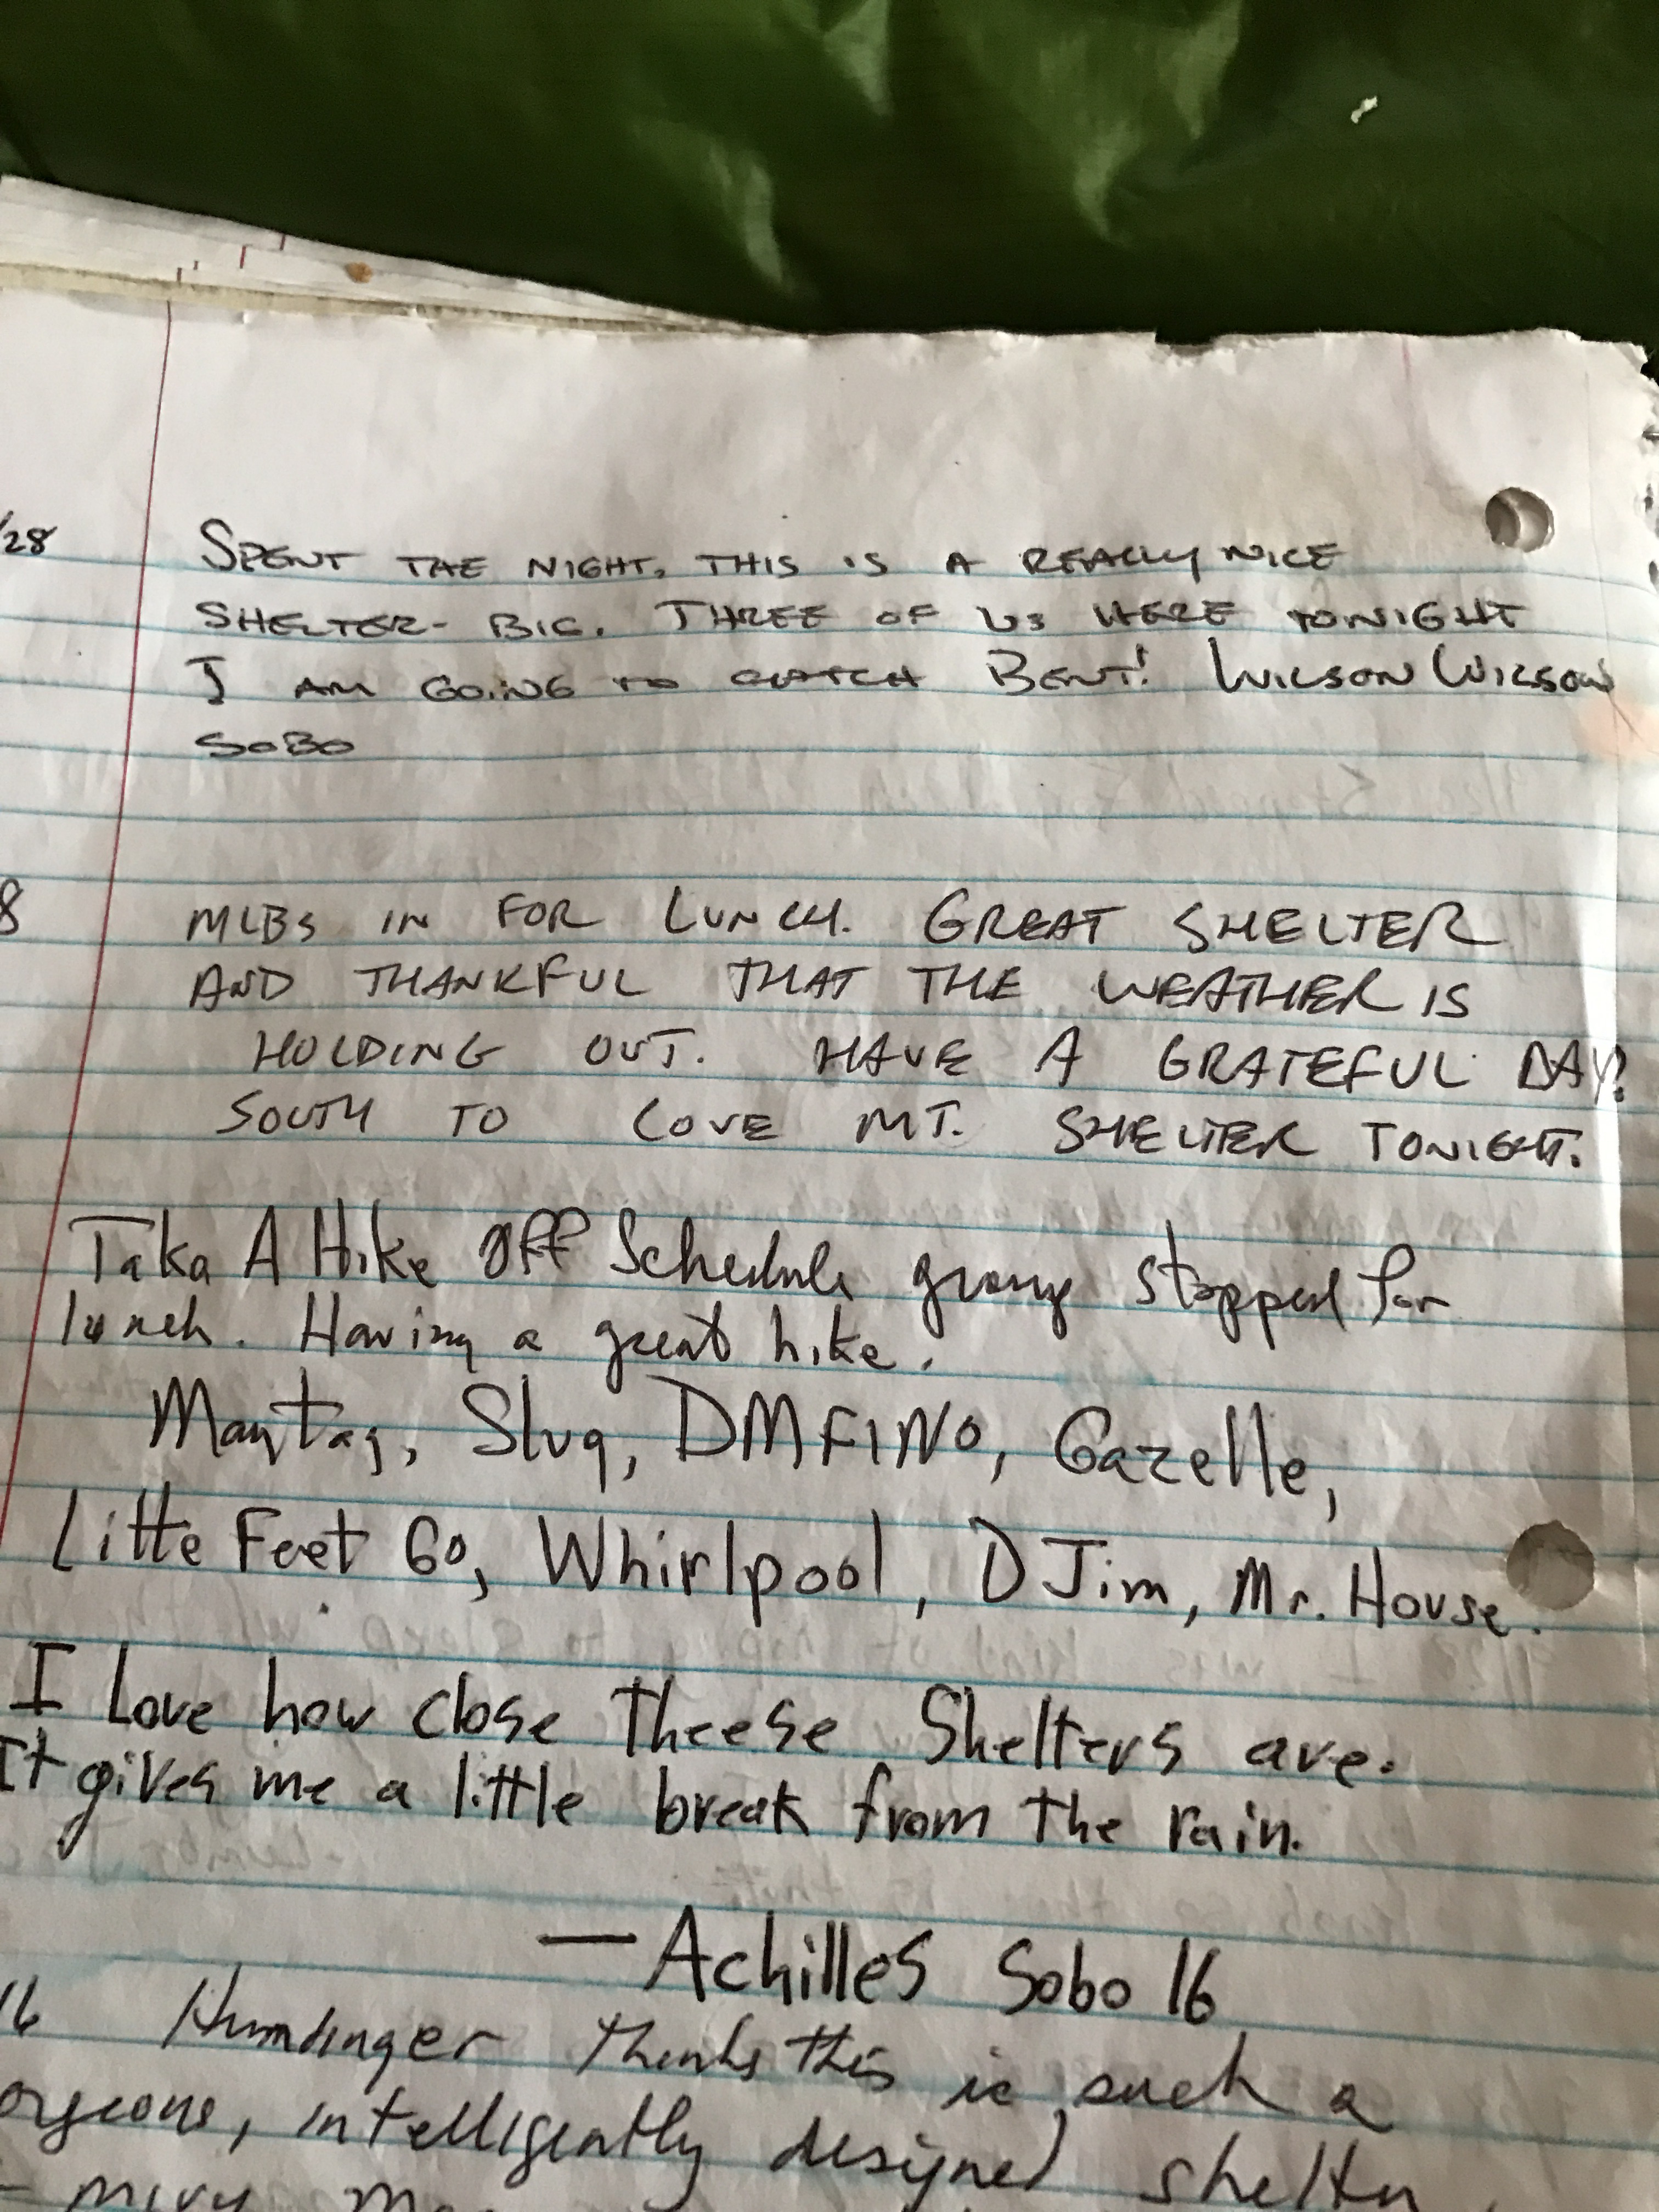 /28 SPENT THE NIGHT. THIS IS A REALLY NICE
SHELTER- BIG. THREE OF US HERE TONIGHT
I AM GOING TO CATCH BENT! WILSON WILSON
SOBO
8 MLBS IN FOR LUNCH. GREAT SHELTER
AND THANKFUL THAT THE WEATHER IS
HOLDING OUT. HAVE A GRATEFUL DAY!
SOUTH TO COVE MT. SHELTER TONIGHT.
Taka A Hike Off Schedule group stopped for
lunch. Having a great hike.
Maytag, Slug, DMFINO, Gazelle,
Little Feet Go, Whirlpool, D Jim, Mr. House.
I Love how close Theese Shelters are.
It gives me a little break from the rain.
— Achilles Sobo 16
16 Humdinger thinks this is such a
orgeous, intelligently designed shelter